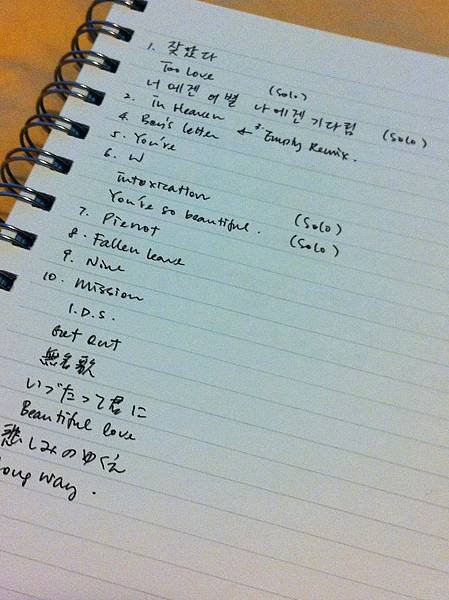 1. 찾았다
Too Love (Solo)
너에겐 이별 나에겐 기다림 (Solo)
2. In Heaven & 3. Empty Remix.
4. Boy's letter
5. You're
6. W
Intoxication (Solo)
You're so beautiful. (Solo)
7. Pierrot
8. Fallen leave
9. Nine
10. Mission
I.D.S.
Get Out
無名歌
いつだって君に
Beautiful love
悲しみのゆくえ
Long way.